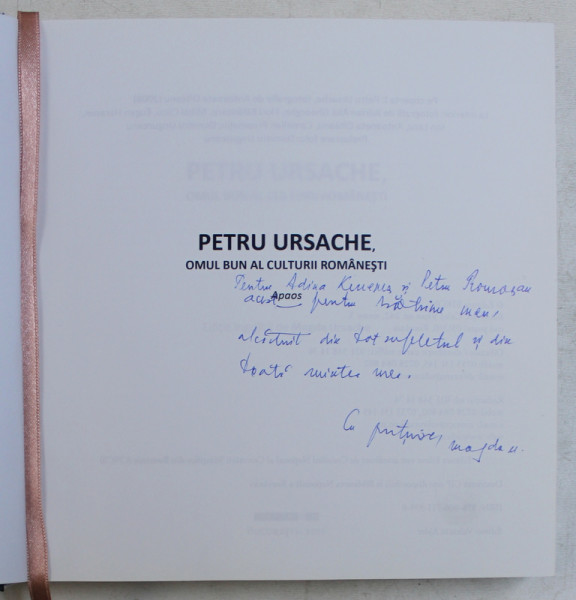 PETRU URSACHE,
OMUL BUN AL CULTURII ROMÂNEŞTI
Pentru Adina Kenereș și Petru Romoșan
Apaos
acest pentru bătrânul meu,
alcătuit din tot sufletul și din
toată mintea mea.
Cu prețuire, magda u.